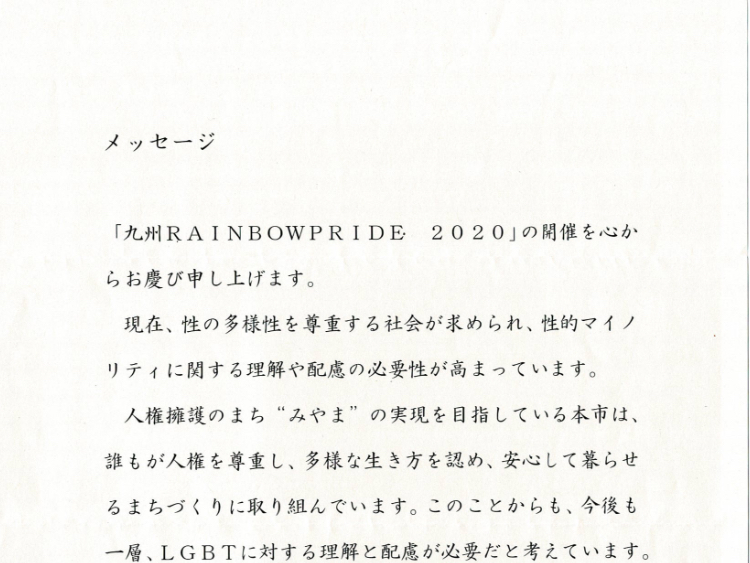 メッセージ
「九州ＲＡＩＮＢＯＷＰＲＩＤＥ　２０２０」の開催を心か
らお慶び申し上げます。
　現在、性の多様性を尊重する社会が求められ、性的マイノ
リティに関する理解や配慮の必要性が高まっています。
　人権擁護のまち“みやま”の実現を目指している本市は、
誰もが人権を尊重し、多様な生き方を認め、安心して暮らせ
るまちづくりに取り組んでいます。このことからも、今後も
一層、ＬＧＢＴに対する理解と配慮が必要だと考えています。